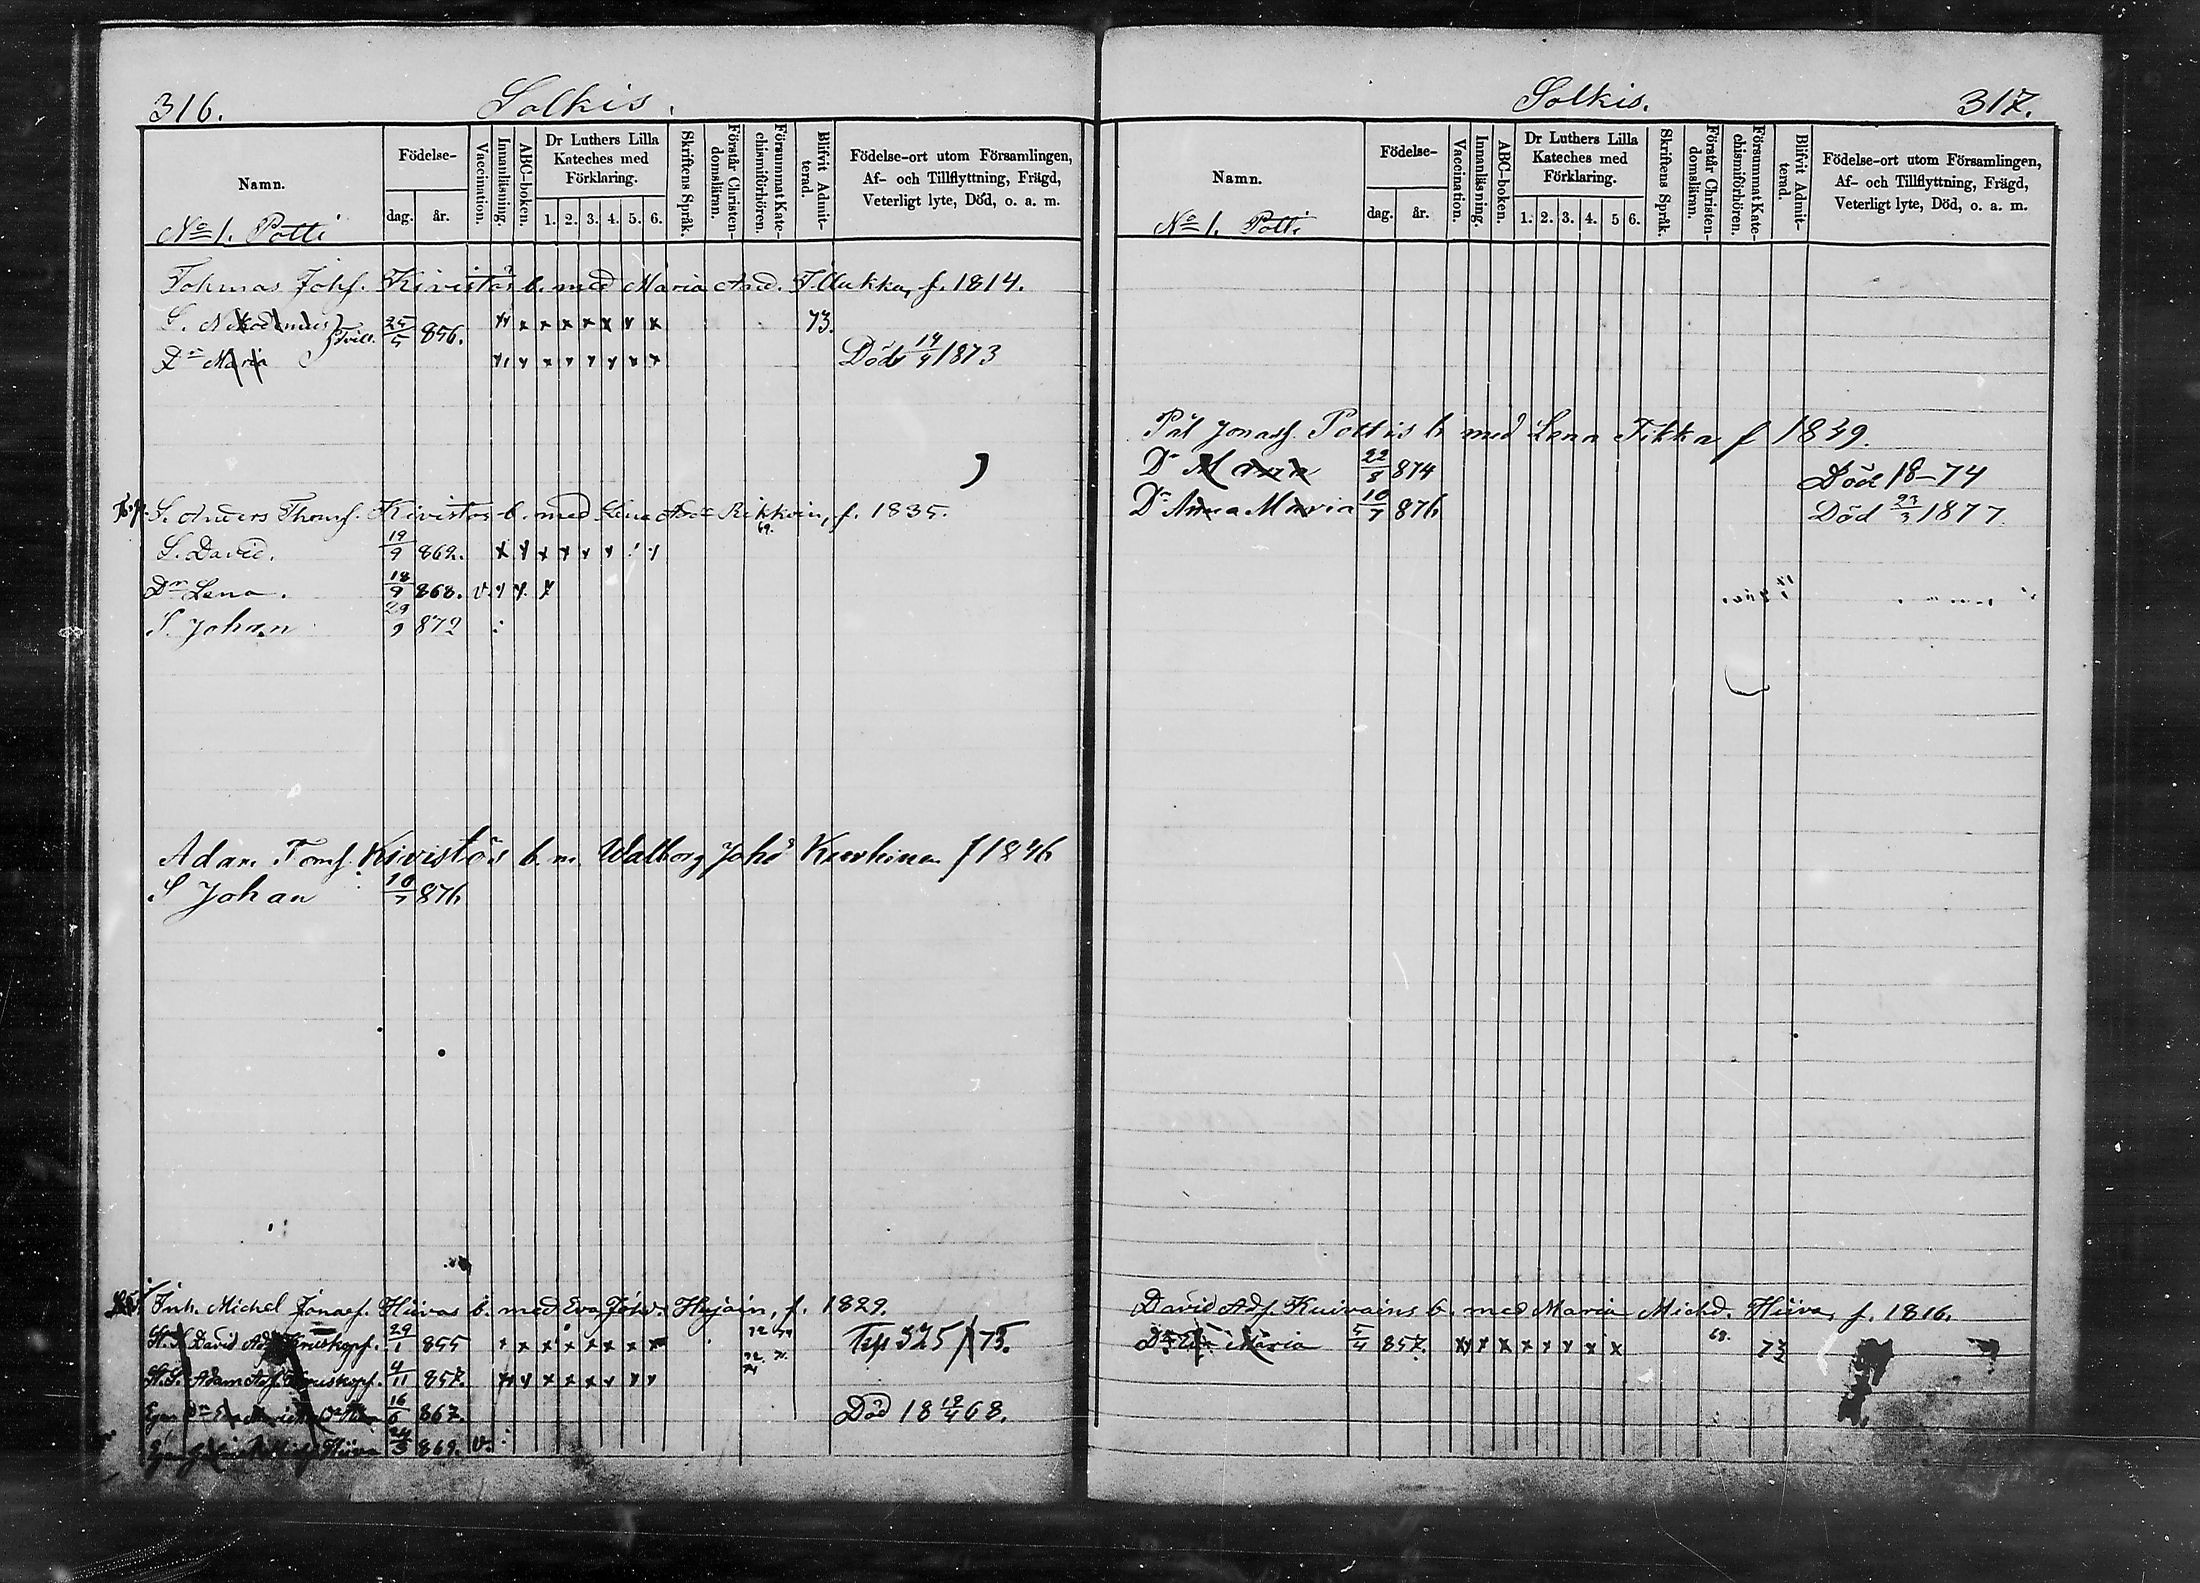 316.
Solkis.
Namn.
Födelse-
dag.
år.
Vaccination.
Innanläsning.
ABC-boken.
Dr Luthers Lilla
Kateches med
Förklaring.
1. 2. 3. 4. 5. 6.
Skriftens Språk.
Förstår Christen-
domsläran.
Försummat Kate-
chismiförhören.
Blifvit Admit-
terad.
Födelse-ort utom Församlingen,
Af- och Tillflyttning, Frägd,
Veterligt lyte, Död, o. a. m.
No 1. Potti
Tohmas Johs. Kivistös b. med Maria And. f. 1814.
S. Nikodemus Tvill. 25/5 856. x x x x x x x x 73.
Dr Maria x x x x x x x x Död 14/4 1873
S. Anders Thoms. Kivistös b. med Lena Rikkoin, f. 1835.
69.
S. David. 19/9 862. x x x x x x
Dr Lena. 18/9 868. v. x x x
S. Johan 29/9 872
Adam Toms. Kivistös b. m. Walborg Kurkinen f 1846
S Johan 10/7 876
Inh. Michel Jonaes. Hiivas b. med Eva f. 1829.
S. David Ad. Kruskopf. 29/1 855 x x x x x x x x 325/75.
S. Adam Kruskopf. 4/11 857. x x x x x x x x
16/6 867. Död 18 12/4 68.
Hiiva 24/5 869. v.
Solkis.
317.
Namn.
Födelse-
dag.
år.
Vaccination.
Innanläsning.
ABC-boken.
Dr Luthers Lilla
Kateches med
Förklaring.
1. 2. 3. 4. 5 6.
Skriftens Språk.
Förstår Christen-
domsläran.
Försummat Kate-
chismiförhören.
Blifvit Admit-
terad.
Födelse-ort utom Församlingen,
Af- och Tillflyttning, Frägd,
Veterligt lyte, Död, o. a. m.
No 1. Potti
Pål Jonass. Pottis b med Lena Tikka f 1839.
Dr Maria 22/8 874 Död 18–74
Dr Anna Maria 10/7 876 Död 23/3 1877.
David Ads. Kuivains b. med Maria Michd. Hiiva, f. 1816.
Maria 5/4 857. x x x x x x x x 68. 73